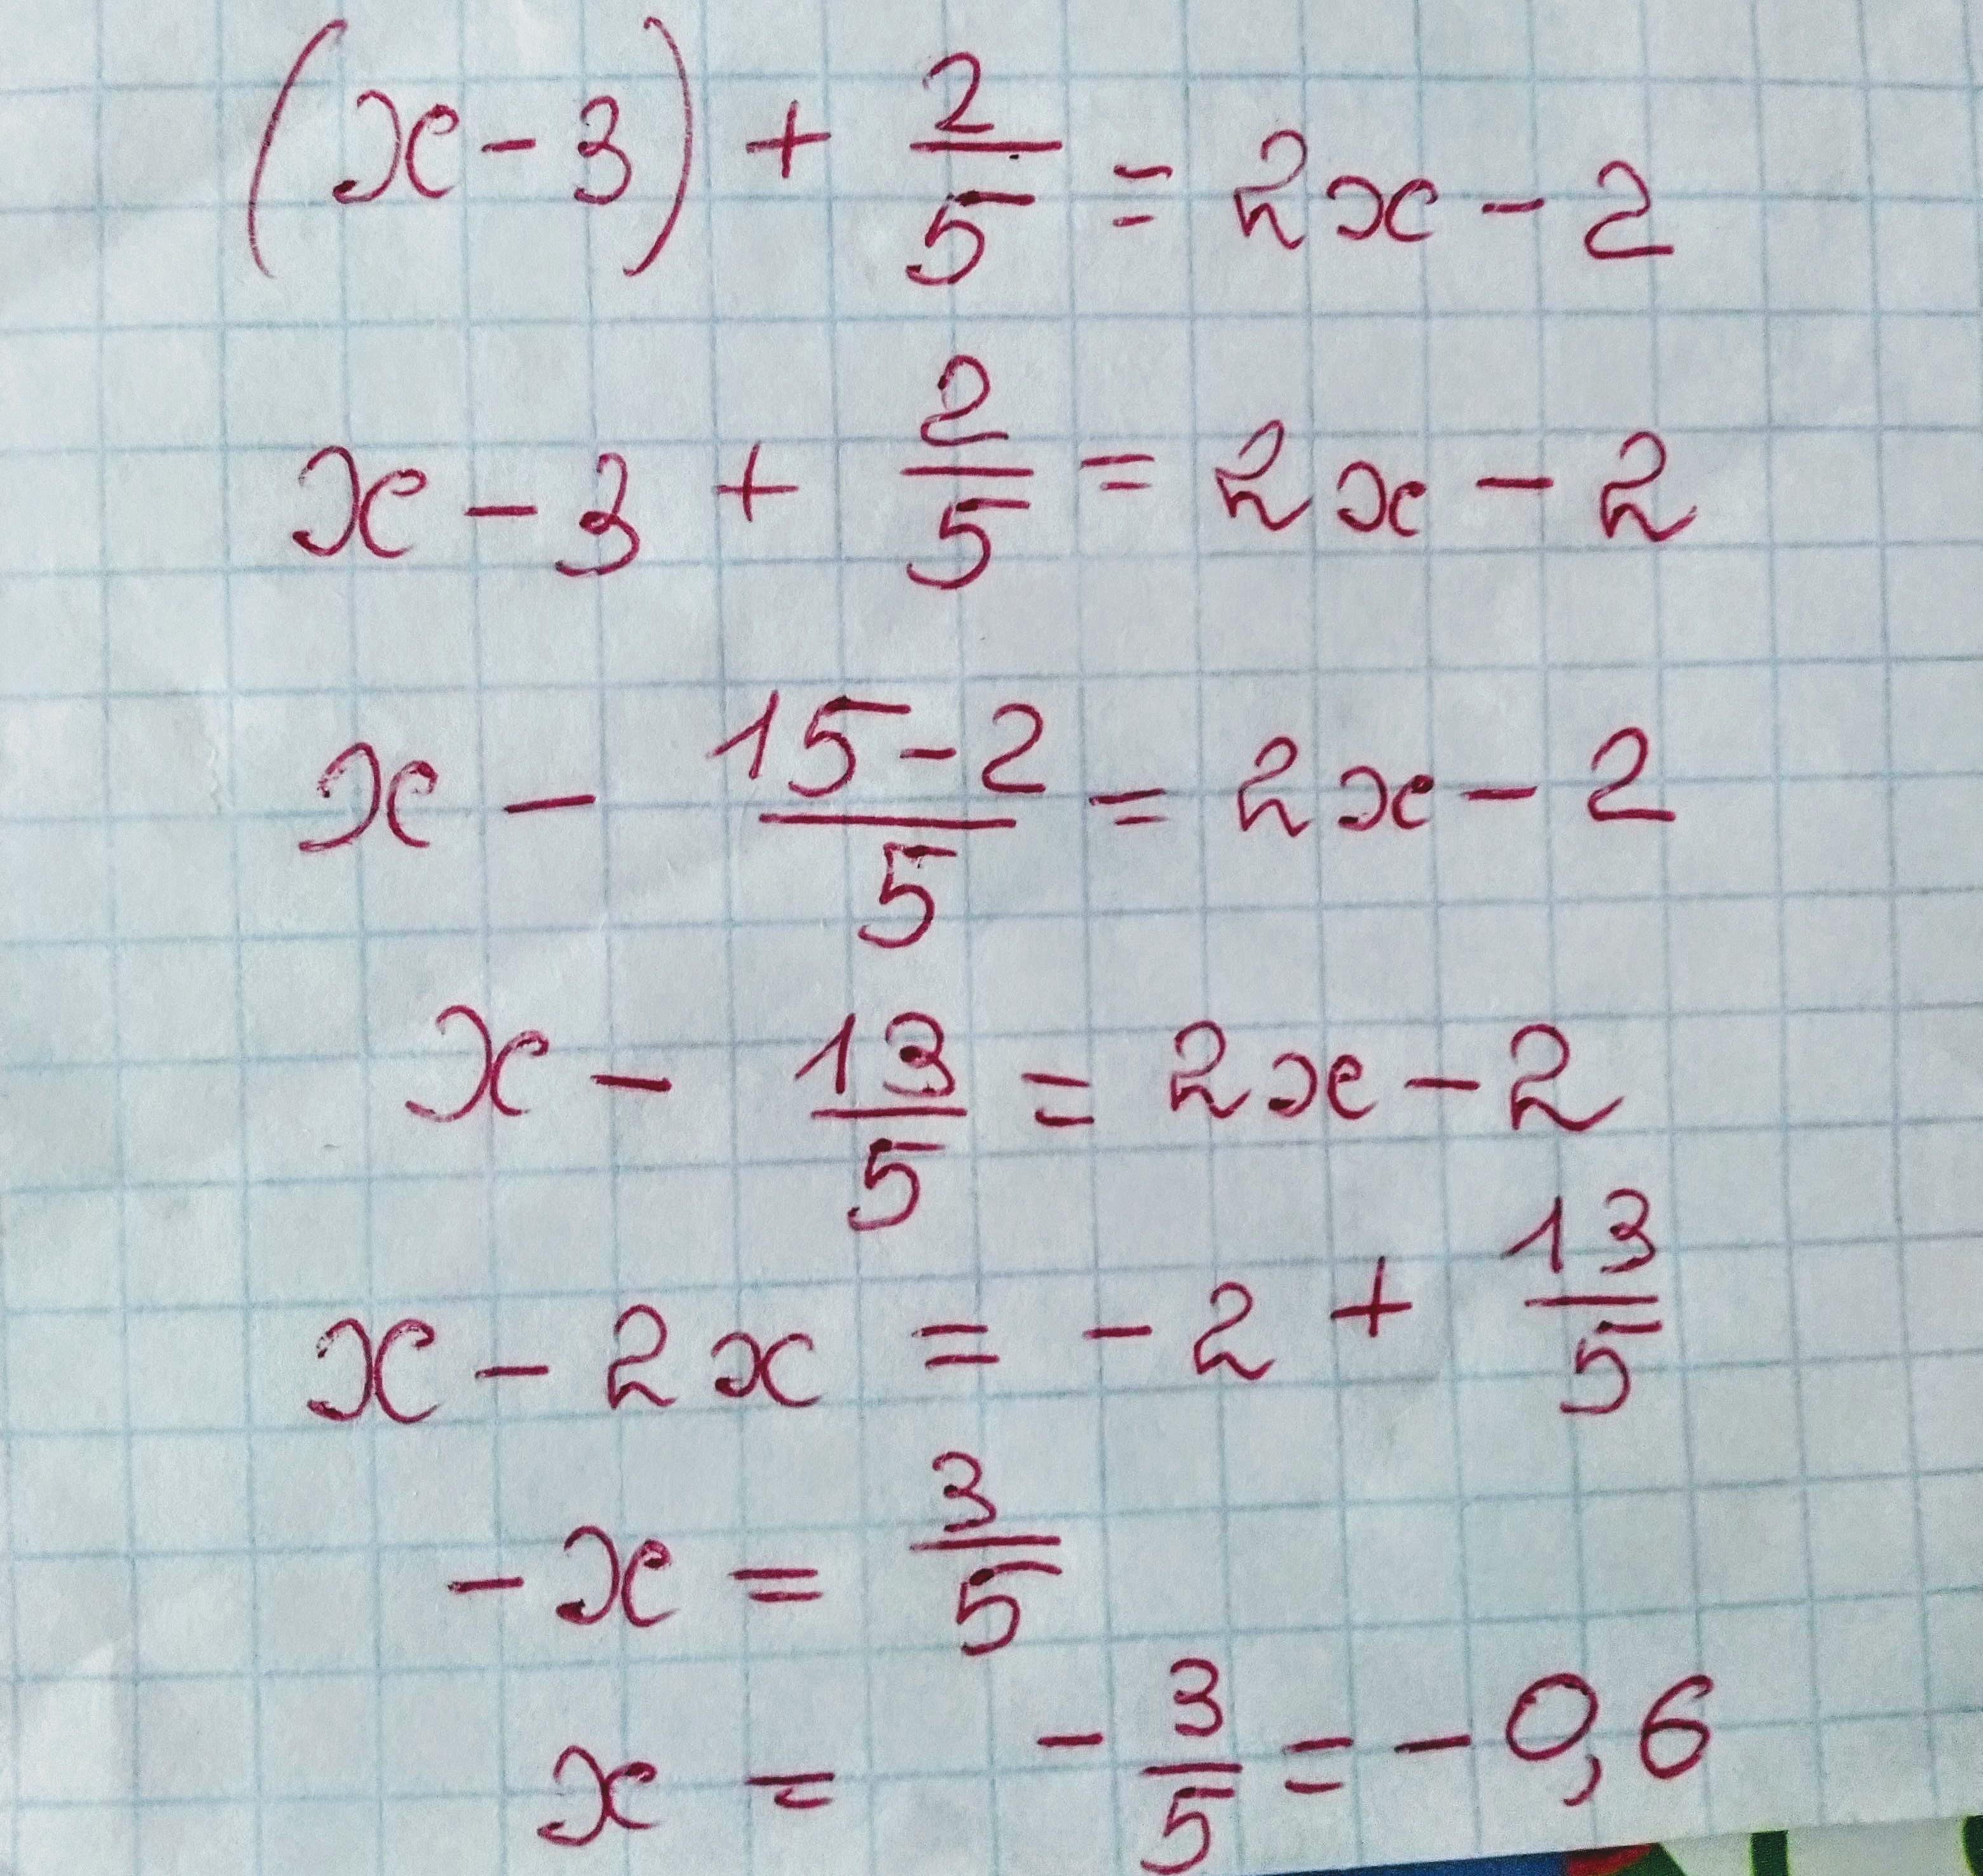 (x - 3) + 2/5 = 2x - 2
x - 3 + 2/5 = 2x - 2
x - (15 - 2)/5 = 2x - 2
x - 13/5 = 2x - 2
x - 2x = -2 + 13/5
-x = 3/5
x = -3/5 = -0,6